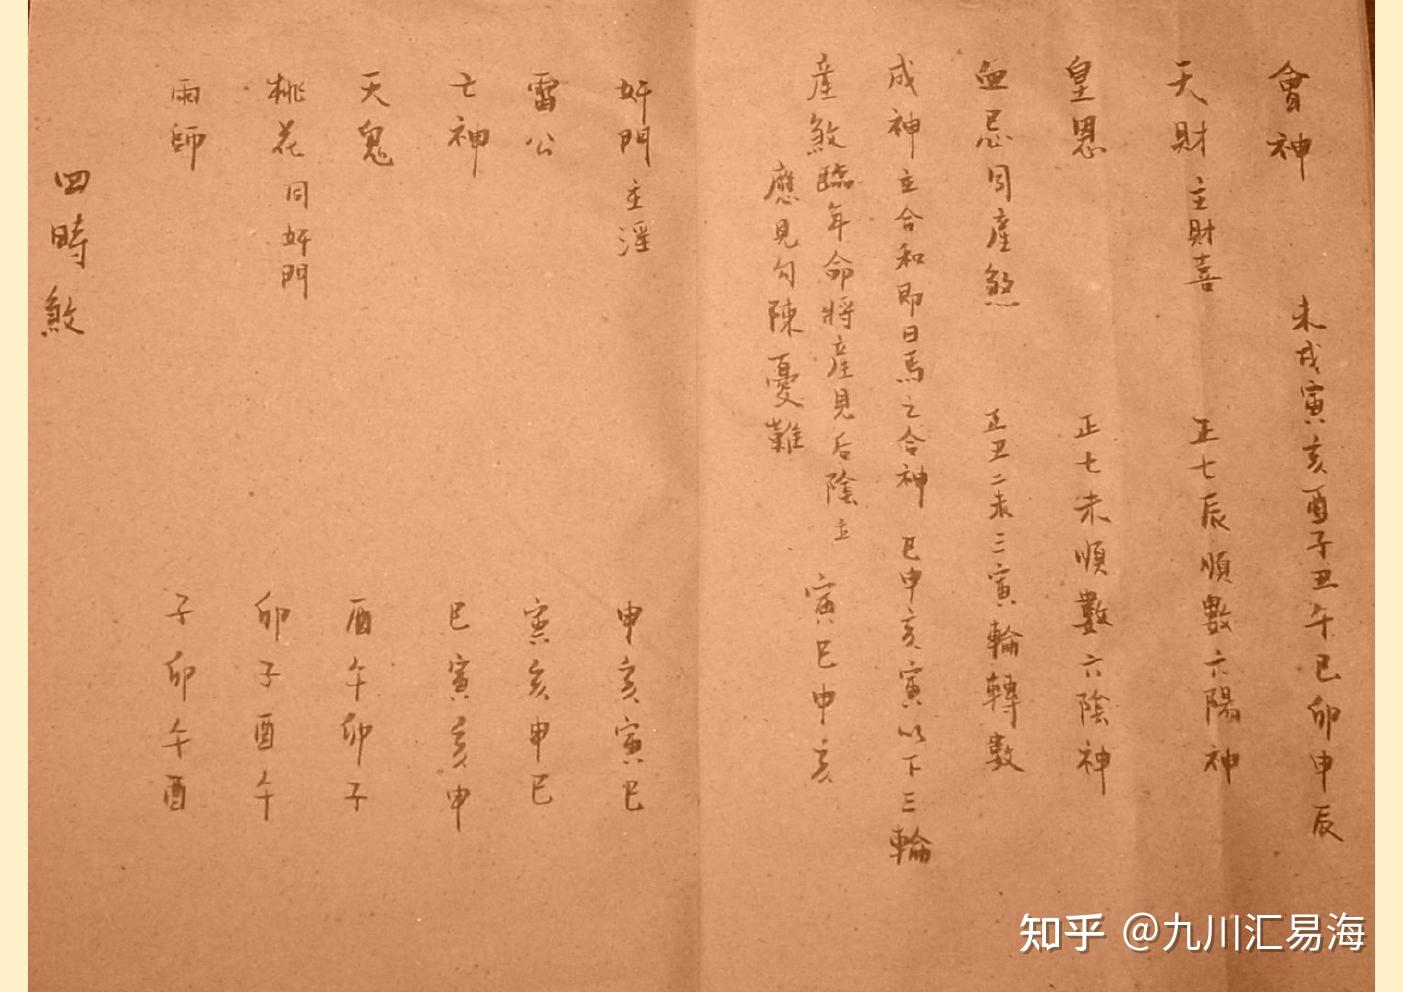 會神 未戌寅亥酉子丑午巳卯申辰
天財 主財喜 正七辰順數六陽神
皇恩 正七未順數六陰神
血忌 同產煞 正丑二未三寅輪轉數
成神 主合和即日馬之合神 巳申亥寅以下三輪
產煞 臨年命將產見后陰立 寅巳申亥
應見勾陳憂難
奸門 主淫 申亥寅巳
雷公 寅亥申巳
亡神 巳寅亥申
天鬼 酉午卯子
桃花 同奸門 卯子酉午
雨師 子卯午酉
四時煞
知乎 @九川汇易海